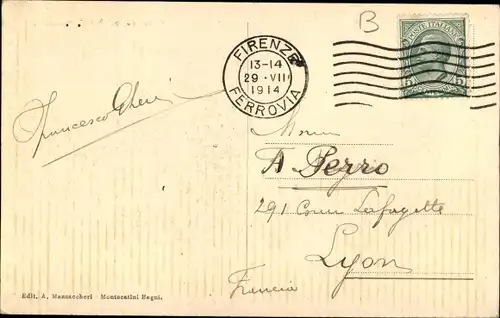 B
POSTE ITALIANE
FIRENZE
13-14
29 · VII
1914
FERROVIA
Francesco
A Perro
291 Cours Lafayette
Lyon
Francia
Edit. A. Massaccheri - Montecatini Bagni.